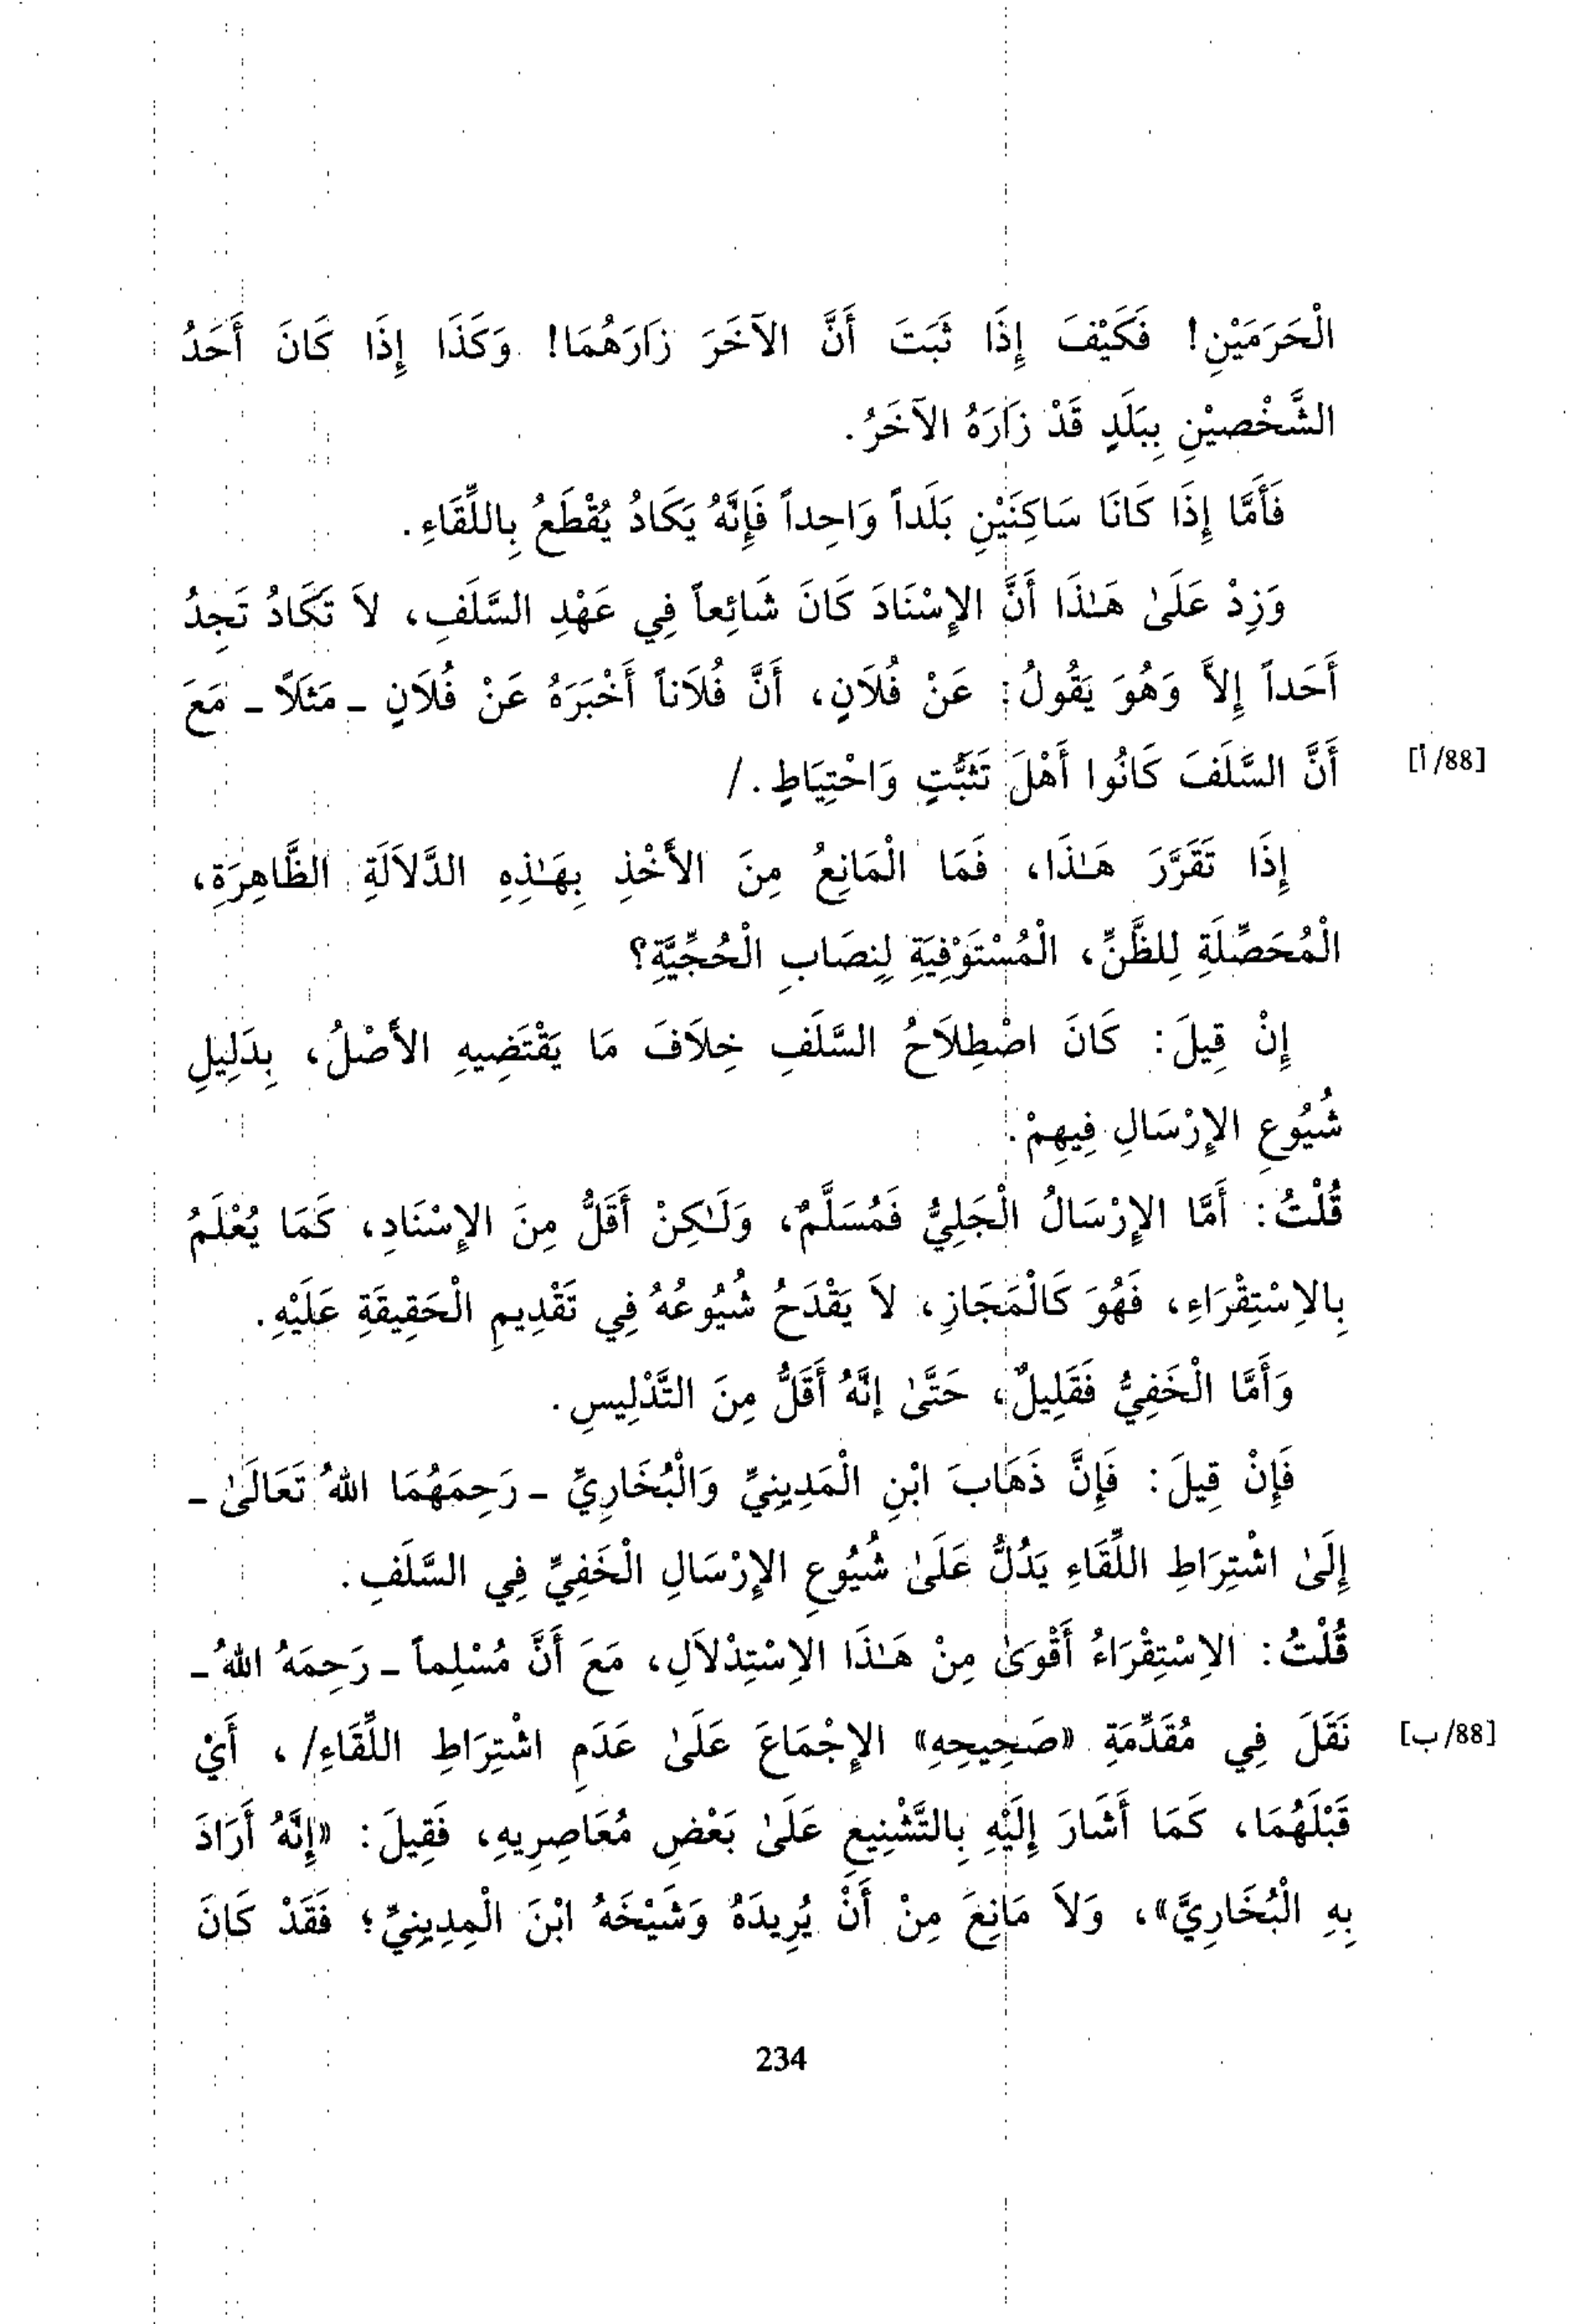 الْحَرَمَيْنِ! فَكَيْفَ إِذَا ثَبَتَ أَنَّ الآخَرَ زَارَهُمَا! وَكَذَا إِذَا كَانَ أَحَدُ
الشَّخْصيْنِ بِبَلَدٍ قَدْ زَارَهُ الآخَرُ.
فَأَمَّا إِذَا كَانَا سَاكِنَيْنِ بَلَداً وَاحِداً فَإِنَّهُ يَكَادُ يُقْطَعُ بِاللِّقَاءِ.
وَزِدْ عَلَىٰ هَـٰذَا أَنَّ الإِسْنَادَ كَانَ شَائِعاً فِي عَهْدِ السَّلَفِ، لاَ تَكَادُ تَجِدُ
أَحَداً إِلاَّ وَهُوَ يَقُولُ: عَنْ فُلاَنٍ، أَنَّ فُلاَناً أَخْبَرَهُ عَنْ فُلاَنٍ ـ مَثَلاً ـ مَعَ
أَنَّ السَّلَفَ كَانُوا أَهْلَ تَثَبُّتٍ وَاحْتِيَاطٍ. / [88/أ]
إِذَا تَقَرَّرَ هَـٰذَا، فَمَا الْمَانِعُ مِنَ الأَخْذِ بِهَـٰذِهِ الدَّلاَلَةِ الظَّاهِرَةِ،
الْمُحَصِّلَةِ لِلظَّنِّ، الْمُسْتَوْفِيَةِ لِنِصَابِ الْحُجِّيَّةِ؟
إِنْ قِيلَ: كَانَ اصْطِلاَحُ السَّلَفِ خِلاَفَ مَا يَقْتَضِيهِ الأَصْلُ، بِدَلِيلِ
شُيُوعِ الإِرْسَالِ فِيهِمْ.
قُلْتُ: أَمَّا الإِرْسَالُ الْجَلِيُّ فَمُسَلَّمٌ، وَلَـٰكِنْ أَقَلُّ مِنَ الإِسْنَادِ، كَمَا يُعْلَمُ
بِالاِسْتِقْرَاءِ، فَهُوَ كَالْمَجَازِ، لاَ يَقْدَحُ شُيُوعُهُ فِي تَقْدِيمِ الْحَقِيقَةِ عَلَيْهِ.
وَأَمَّا الْخَفِيُّ فَقَلِيلٌ، حَتَّىٰ إنَّهُ أَقَلُّ مِنَ التَّدْلِيسِ.
فَإِنْ قِيلَ: فَإِنَّ ذَهَابَ ابْنِ الْمَدِينِيِّ وَالْبُخَارِيِّ ـ رَحِمَهُمَا اللهُ تَعَالَىٰ ـ
إِلَىٰ اشْتِرَاطِ اللِّقَاءِ يَدُلُّ عَلَىٰ شُيُوعِ الإِرْسَالِ الْخَفِيِّ فِي السَّلَفِ.
قُلْتُ: الاِسْتِقْرَاءُ أَقْوَىٰ مِنْ هَـٰذَا الاِسْتِدْلاَلِ، مَعَ أَنَّ مُسْلِماً ـ رَحِمَهُ اللهُ ـ
نَقَلَ فِي مُقَدِّمَةِ «صَحِيحِهِ» الإِجْمَاعَ عَلَىٰ عَدَمِ اشْتِرَاطِ اللِّقَاءِ/ ، أَيْ [88/ب]
قَبْلَهُمَا، كَمَا أَشَارَ إِلَيْهِ بِالتَّشْنِيعِ عَلَىٰ بَعْضِ مُعَاصِرِيهِ، فَقِيلَ: «إِنَّهُ أَرَادَ
بِهِ الْبُخَارِيَّ»، وَلاَ مَانِعَ مِنْ أَنْ يُرِيدَهُ وَشَيْخَهُ ابْنَ الْمِدِينِيِّ؛ فَقَدْ كَانَ
234